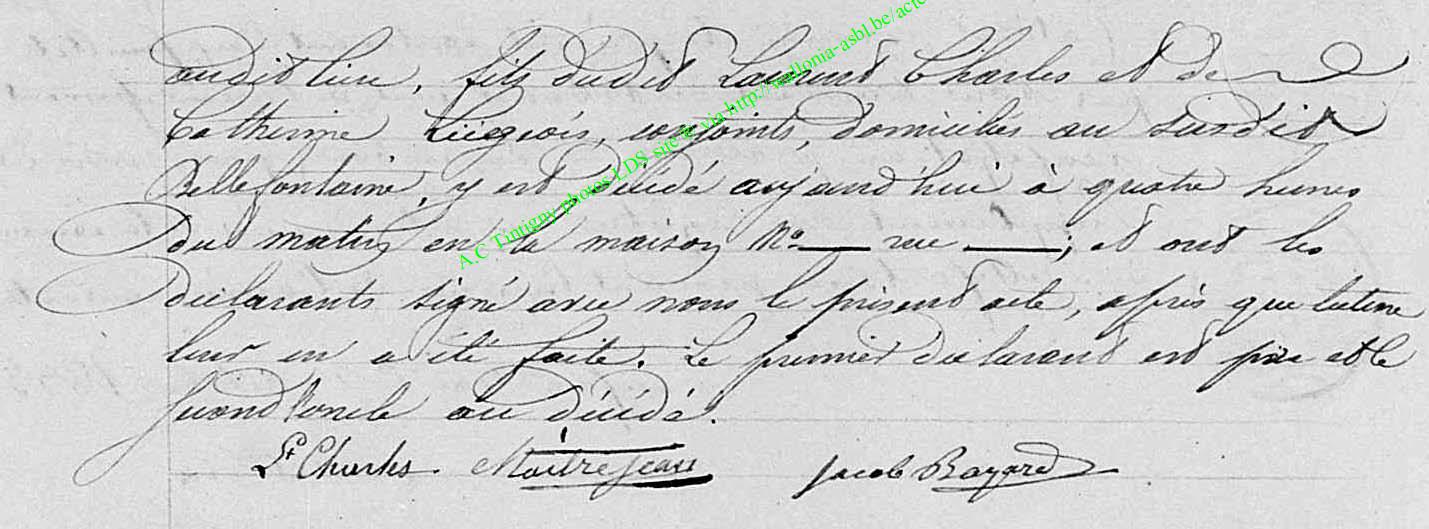 audit lieu, fils dudit Laurent Charles et de
Catherine Liégeois, conjoints, domiciliés au susdit
Bellefontaine, y est décédé aujourd'hui à quatre heures
du matin en la maison No — rue —; et ont les
déclarants signé avec nous le présent acte, après que lecture
leur en a été faite. Le premier déclarant est père et le
second oncle au décédé.
Lt Charles. Maitrejean Jacob Bayard
A.C Tintigny photos LDS site à via http://mallonia-asbl.be/acte